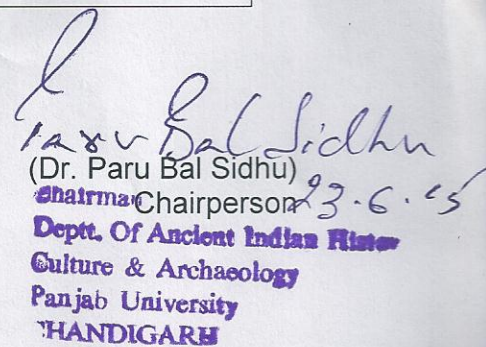 Paru Bal Sidhu
(Dr. Paru Bal Sidhu)
Chairman Chairperson 23.6.15
Deptt. Of Ancient Indian Histor
Culture & Archaeology
Panjab University
CHANDIGARH